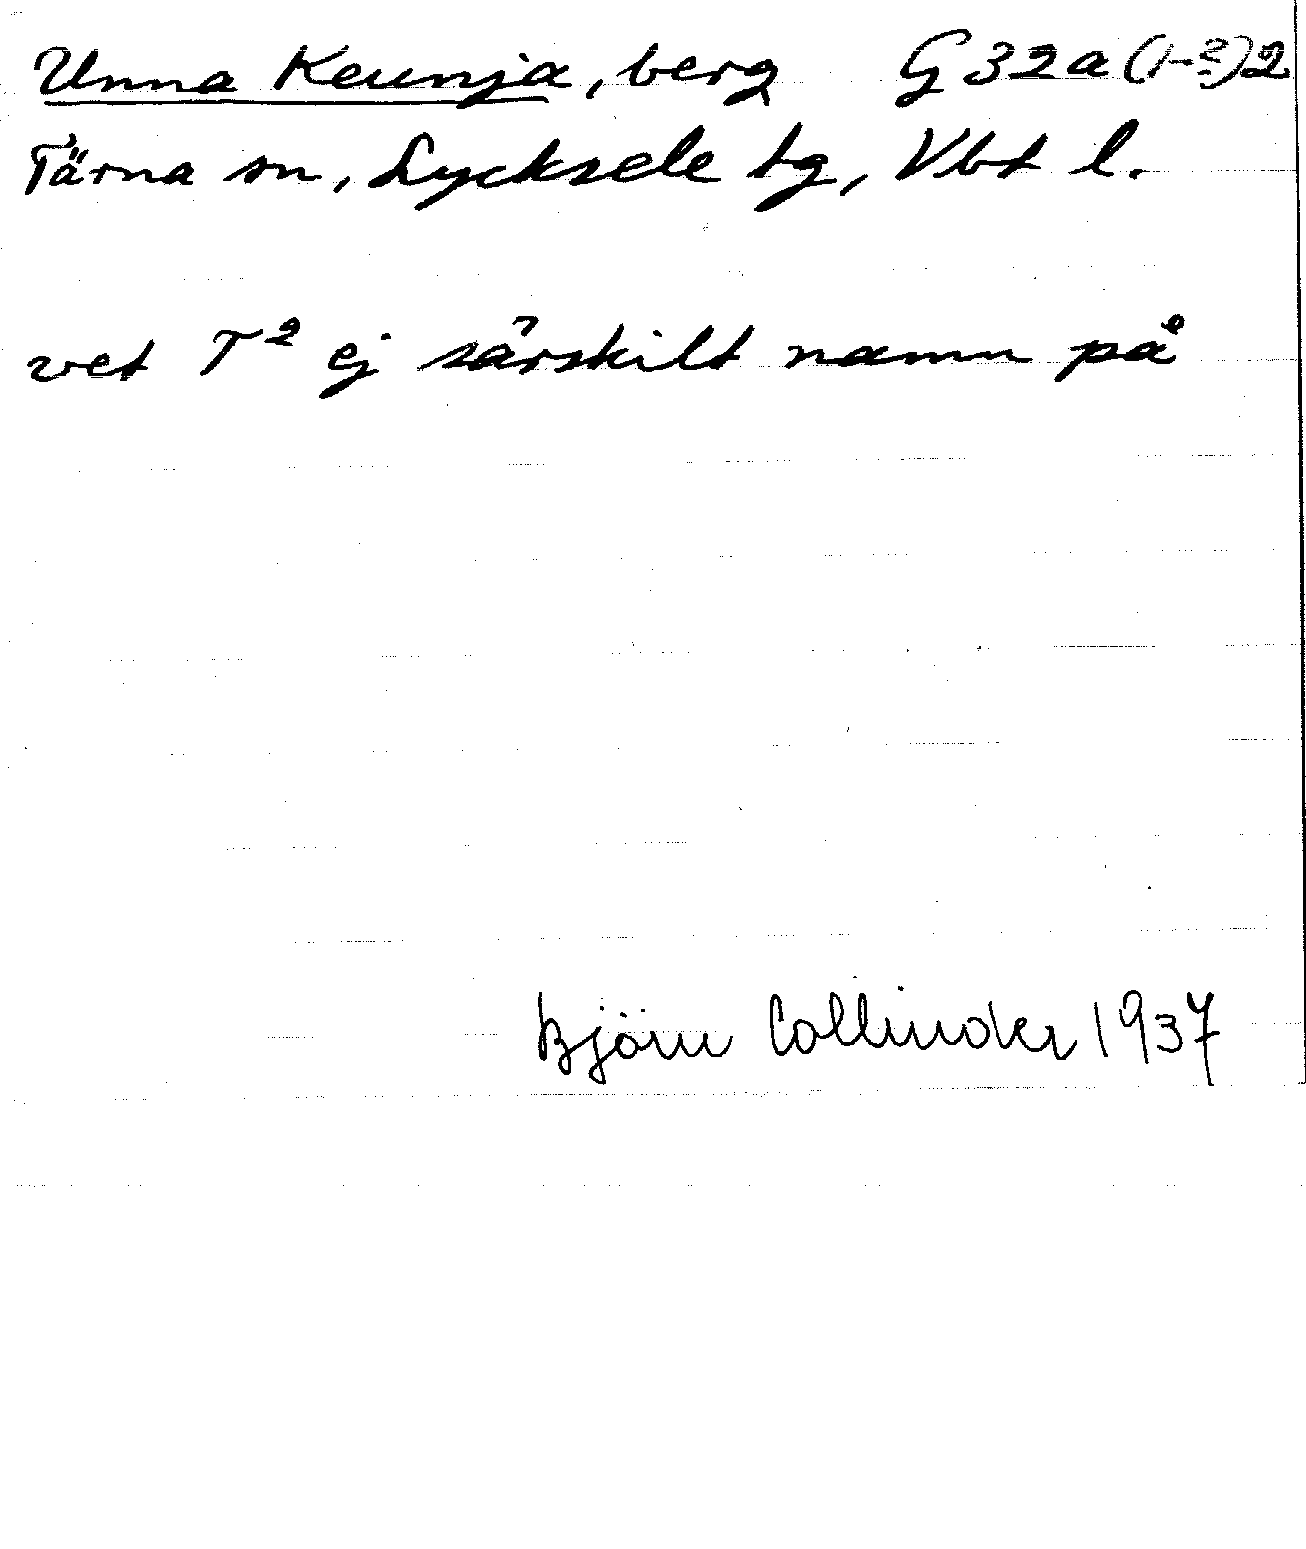 Unna Keunja, berg G32a(1-2)2
Tärna sn, Lycksele tg, Vbt l.
vet T² ej särskilt namn på
Björn Collinder 1937